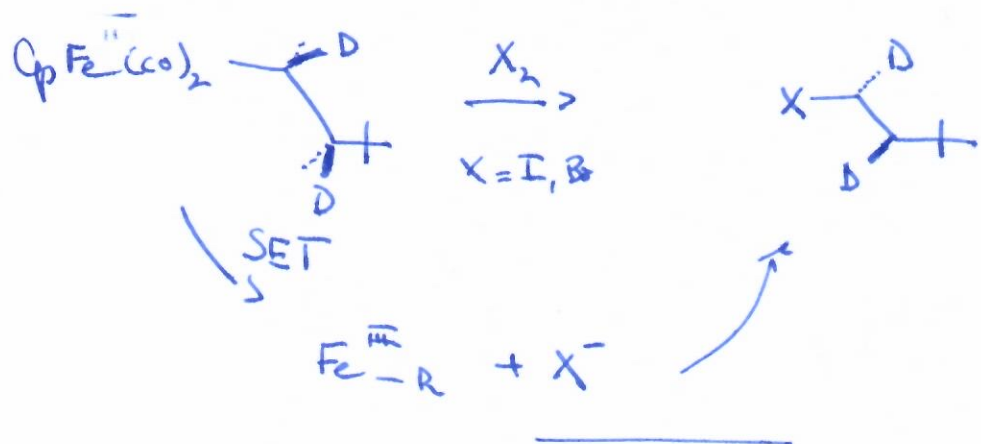 CpFe^II(CO)₂ D X₂ D
X
X = I, Br
D D
SET
Fe^III-R + X⁻